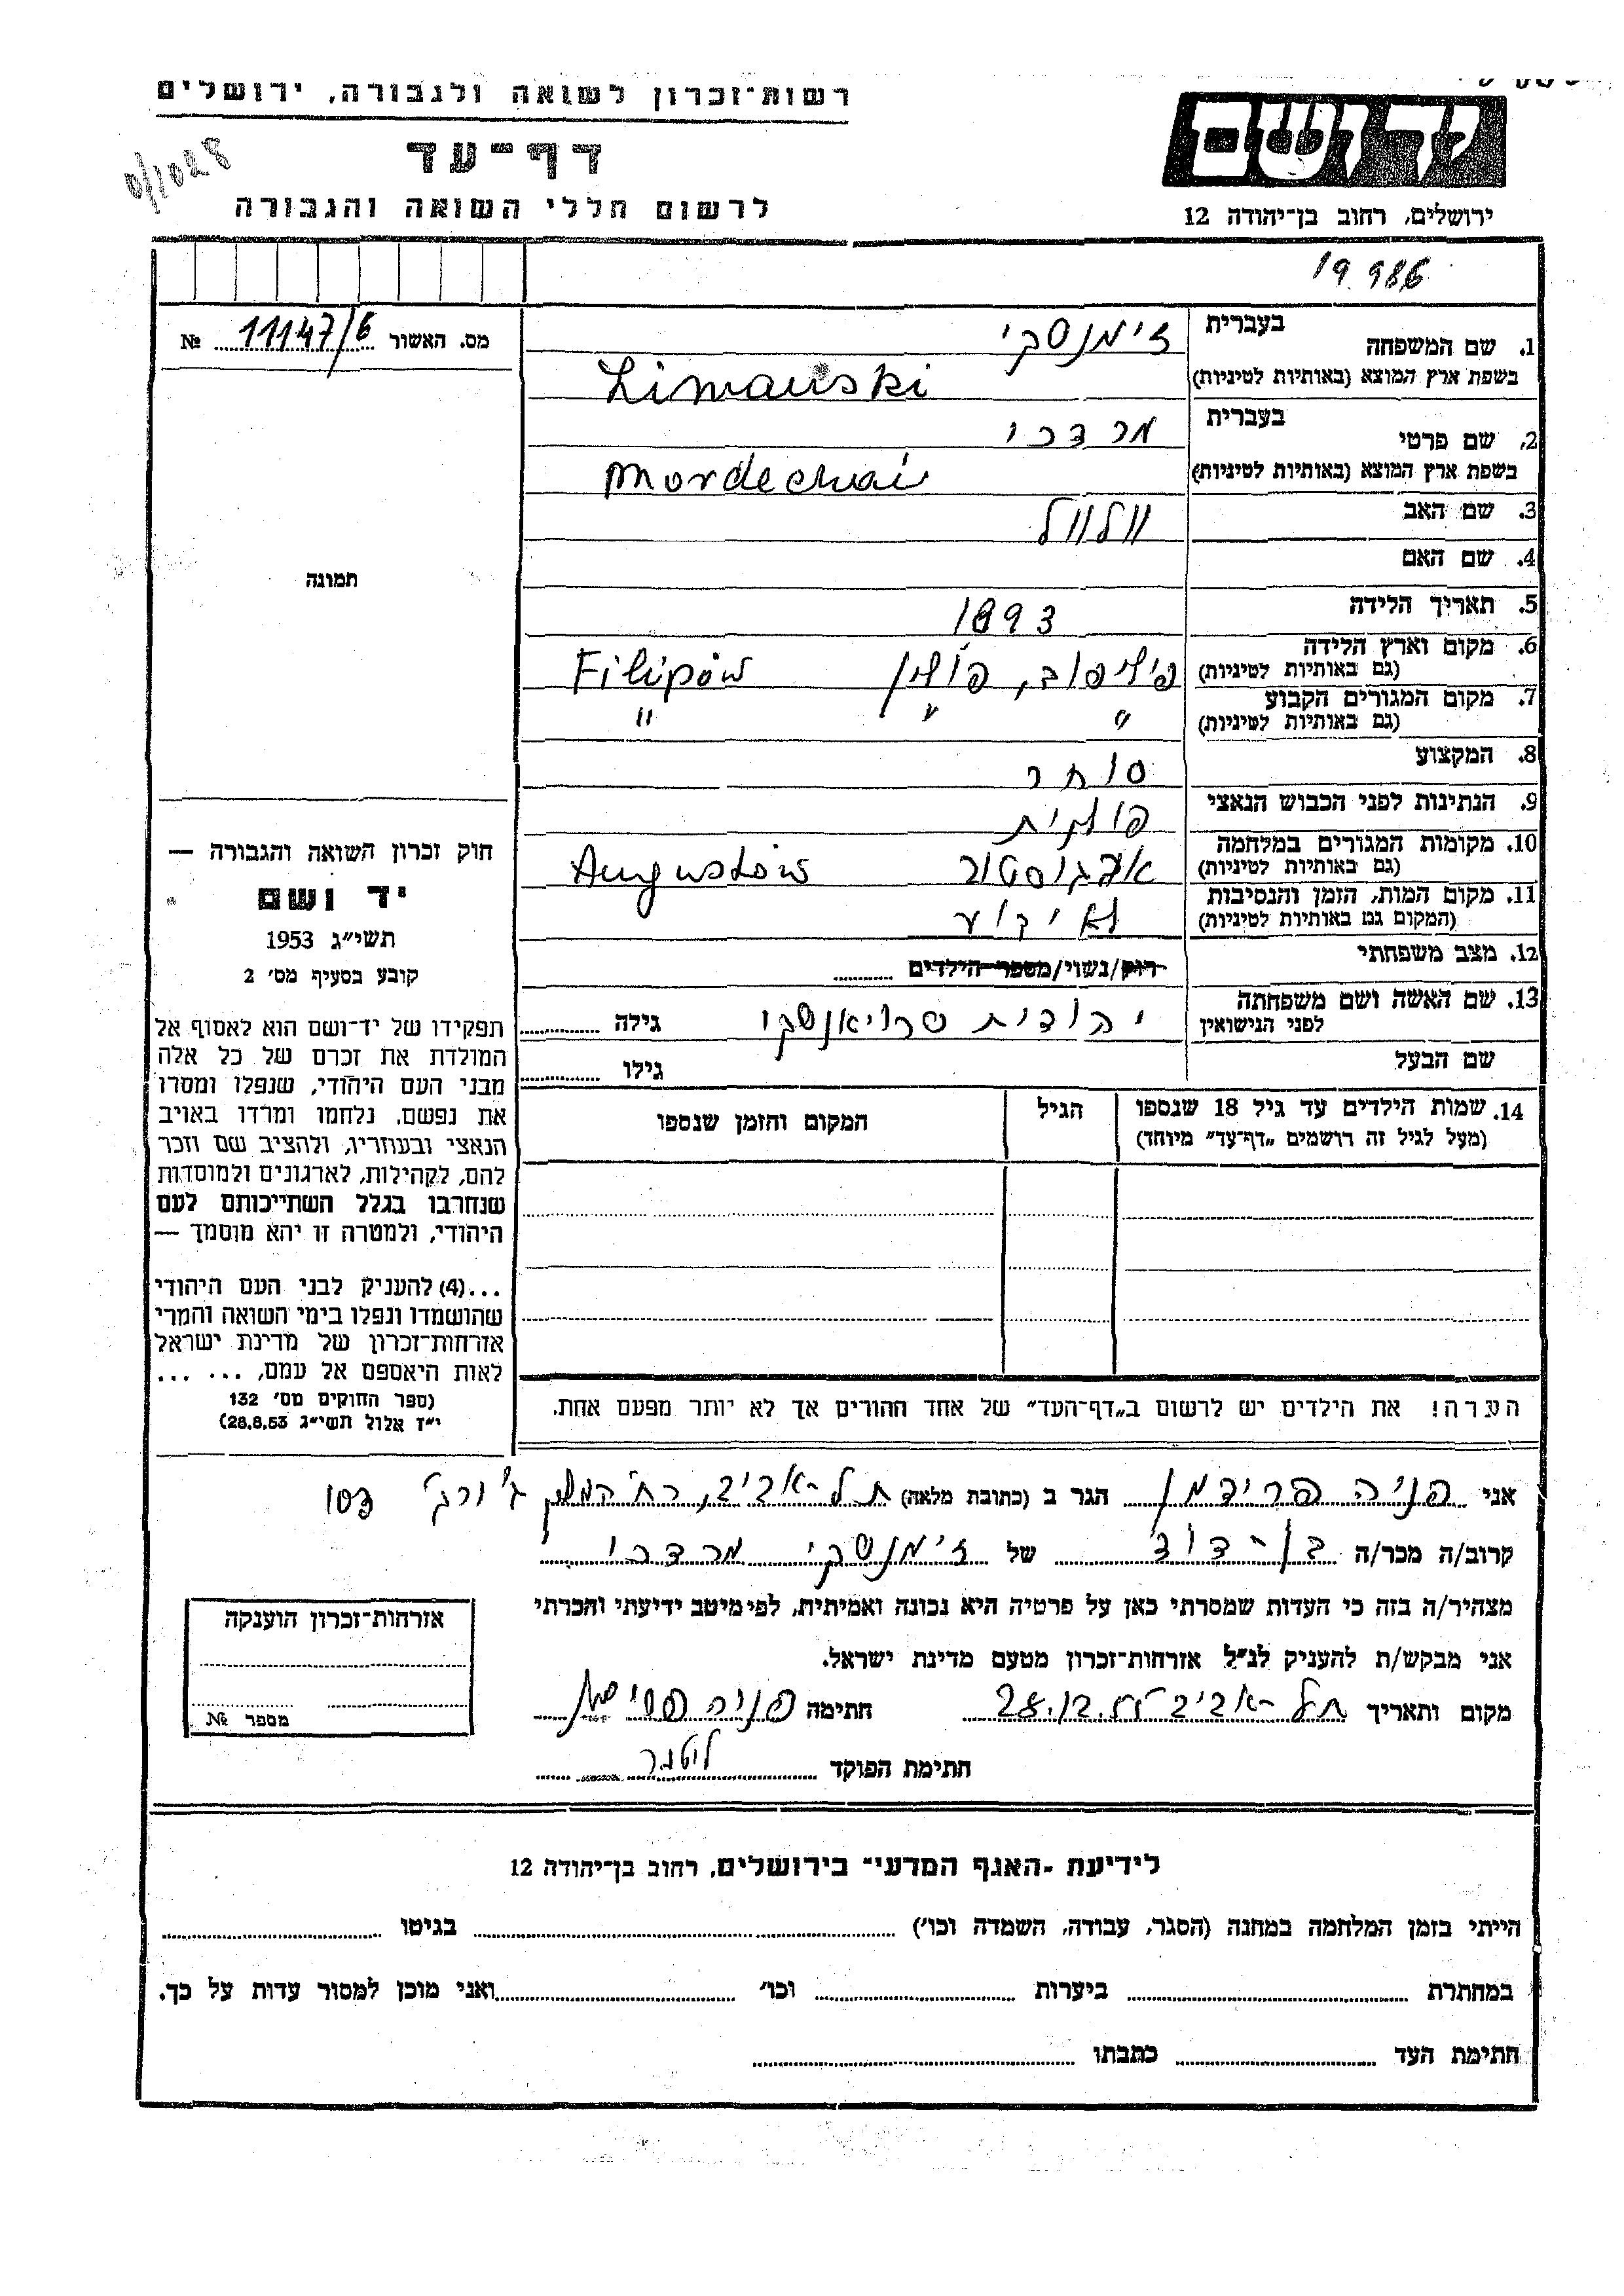 רשות-זכרון לשואה ולגבורה, ירושלים
ידושם
דף-עד
לרשום חללי השואה והגבורה
ירושלים, רחוב בן-יהודה 12
19986
מס. האשור 11147/6 №
1. שם המשפחה בעברית ז'ימנסקי
בשפת ארץ המוצא (באותיות לטיניות) Zimanski
2. שם פרטי בעברית מרדכי
בשפת ארץ המוצא (באותיות לטיניות) Mordechai
3. שם האב וולוול
4. שם האם
5. תאריך הלידה 1893
6. מקום וארץ הלידה פיליפוב, פולין Filipów
(גם באותיות לטיניות)
7. מקום המגורים הקבוע " " "
(גם באותיות לטיניות)
8. המקצוע סוחר
9. הנתינות לפני הכבוש הנאצי פולנית
10. מקומות המגורים במלחמה אוגוסטוב Augustów
(גם באותיות לטיניות)
11. מקום המות, הזמן והנסיבות לא ידוע
(המקום גם באותיות לטיניות)
12. מצב משפחתי רווק/נשוי/מספר הילדים
13. שם האשה ושם משפחתה יהודית גילה
לפני הנישואין
שם הבעל גילו
14. שמות הילדים עד גיל 18 שנספו הגיל המקום והזמן שנספו
(מעל לגיל זה רושמים „דף-עד" מיוחד)
הערה! את הילדים יש לרשום ב„דף-העד" של אחד ההורים אך לא יותר מפעם אחת.
תמונה
חוק זכרון השואה והגבורה —
יד ושם
תשי"ג 1953
קובע בסעיף מס' 2
תפקידו של יד-ושם הוא לאסוף אל
המולדת את זכרם של כל אלה
מבני העם היהודי, שנפלו ומסרו
את נפשם, נלחמו ומרדו באויב
הנאצי ובעוזריו, ולהציב שם וזכר
להם, לקהילות, לארגונים ולמוסדות
שנחרבו בגלל השתייכותם לעם
היהודי, ולמטרה זו יהא מוסמך —
...(4) להעניק לבני העם היהודי
שהושמדו ונפלו בימי השואה והמרי
אזרחות-זכרון של מדינת ישראל
לאות היאספם אל עמם, ... ...
(ספר החוקים מס' 132
י"ז אלול תשי"ג 28.8.53)
אני פניה פרידמן הגר ב (כתובת מלאה) תל-אביב, רח' המלך ג'ורג' 103
קרוב/ה מכר/ה בן-דוד של ז'ימנסקי מרדכי
מצהיר/ה בזה כי העדות שמסרתי כאן על פרטיה היא נכונה ואמיתית, לפי מיטב ידיעתי והכרתי
אני מבקש/ת להעניק לנ"ל אזרחות-זכרון מטעם מדינת ישראל.
מקום ותאריך תל-אביב 28.12. חתימה פניה
חתימת הפוקד
אזרחות-זכרון הוענקה
מספר №
לידיעת „האגף המדעי" בירושלים, רחוב בן-יהודה 12
הייתי בזמן המלחמה במחנה (הסגר, עבודה, השמדה וכו') בגיטו
במחתרת ביערות וכו' ואני מוכן למסור עדות על כך.
חתימת העד כתבתו